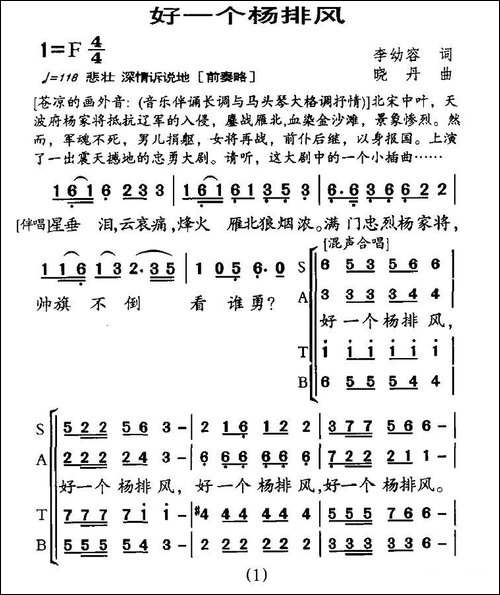 好一个杨排风
1=F 4/4
李幼容 词
♩=118 悲壮 深情诉说地 [前奏略]
晓丹 曲
[苍凉的画外音：(音乐伴诵长调与马头琴大格调抒情)]北宋中叶，天
波府杨家将抵抗辽军的入侵，鏖战雁北,血染金沙滩，景象惨烈。然
而，军魂不死，男儿捐躯，女将再战，前仆后继，以身报国。上演
了一出震天撼地的忠勇大剧。请听，这大剧中的一个小插曲……
1 6 1 6 2 3 3 | 1 6 1 6 1 3 5 3 | 6· 6 3 6 6 2 2
[伴唱]星垂 泪,云哀痛,烽火 雁北狼烟浓。满门忠烈杨家将,
[混声合唱]
1 1 6 1 3 2· 3 5 | 1 0 5 6· 0
帅旗 不 倒 看 谁勇?
S 6 5 3 5 6 6
A 3 3 3 3 4 4
好一个杨排风,
T 1 1 1 1 1 1
B 6 5 5 5 4 4
S 5 2 2 5 6 3 - | 2 1 6 1 2 2 | 3 7 7 5 6 6 -
A 2 2 2 2 4 3 - | 6 6 6 6 6 6 | 7 2 2 2 1 1 -
好一个杨排风, 好一个杨排风,好一个杨排风。
T 7 7 7 7 1 1 - | #4 4 4 4 4 4 | 5 5 5 5 4 4 -
B 5 5 5 5 4 3 - | 2 2 2 2 2 2 | 3 3 3 3 6 6 -
(1)